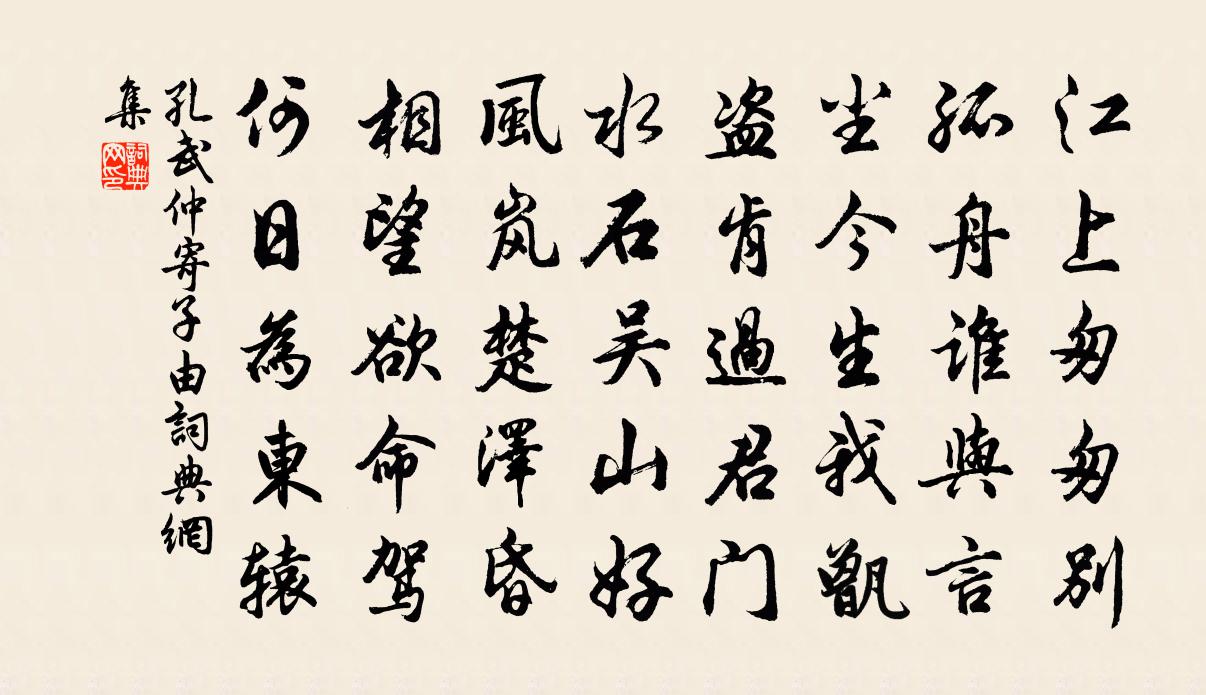 江上匆匆别
孤舟谁與言
尘今生我甑
盗肯過君门
水石吴山好
風岚楚澤昏
相望欲命驾
何日為東辕
孔武仲寄子由詞典網
集
詞典网印